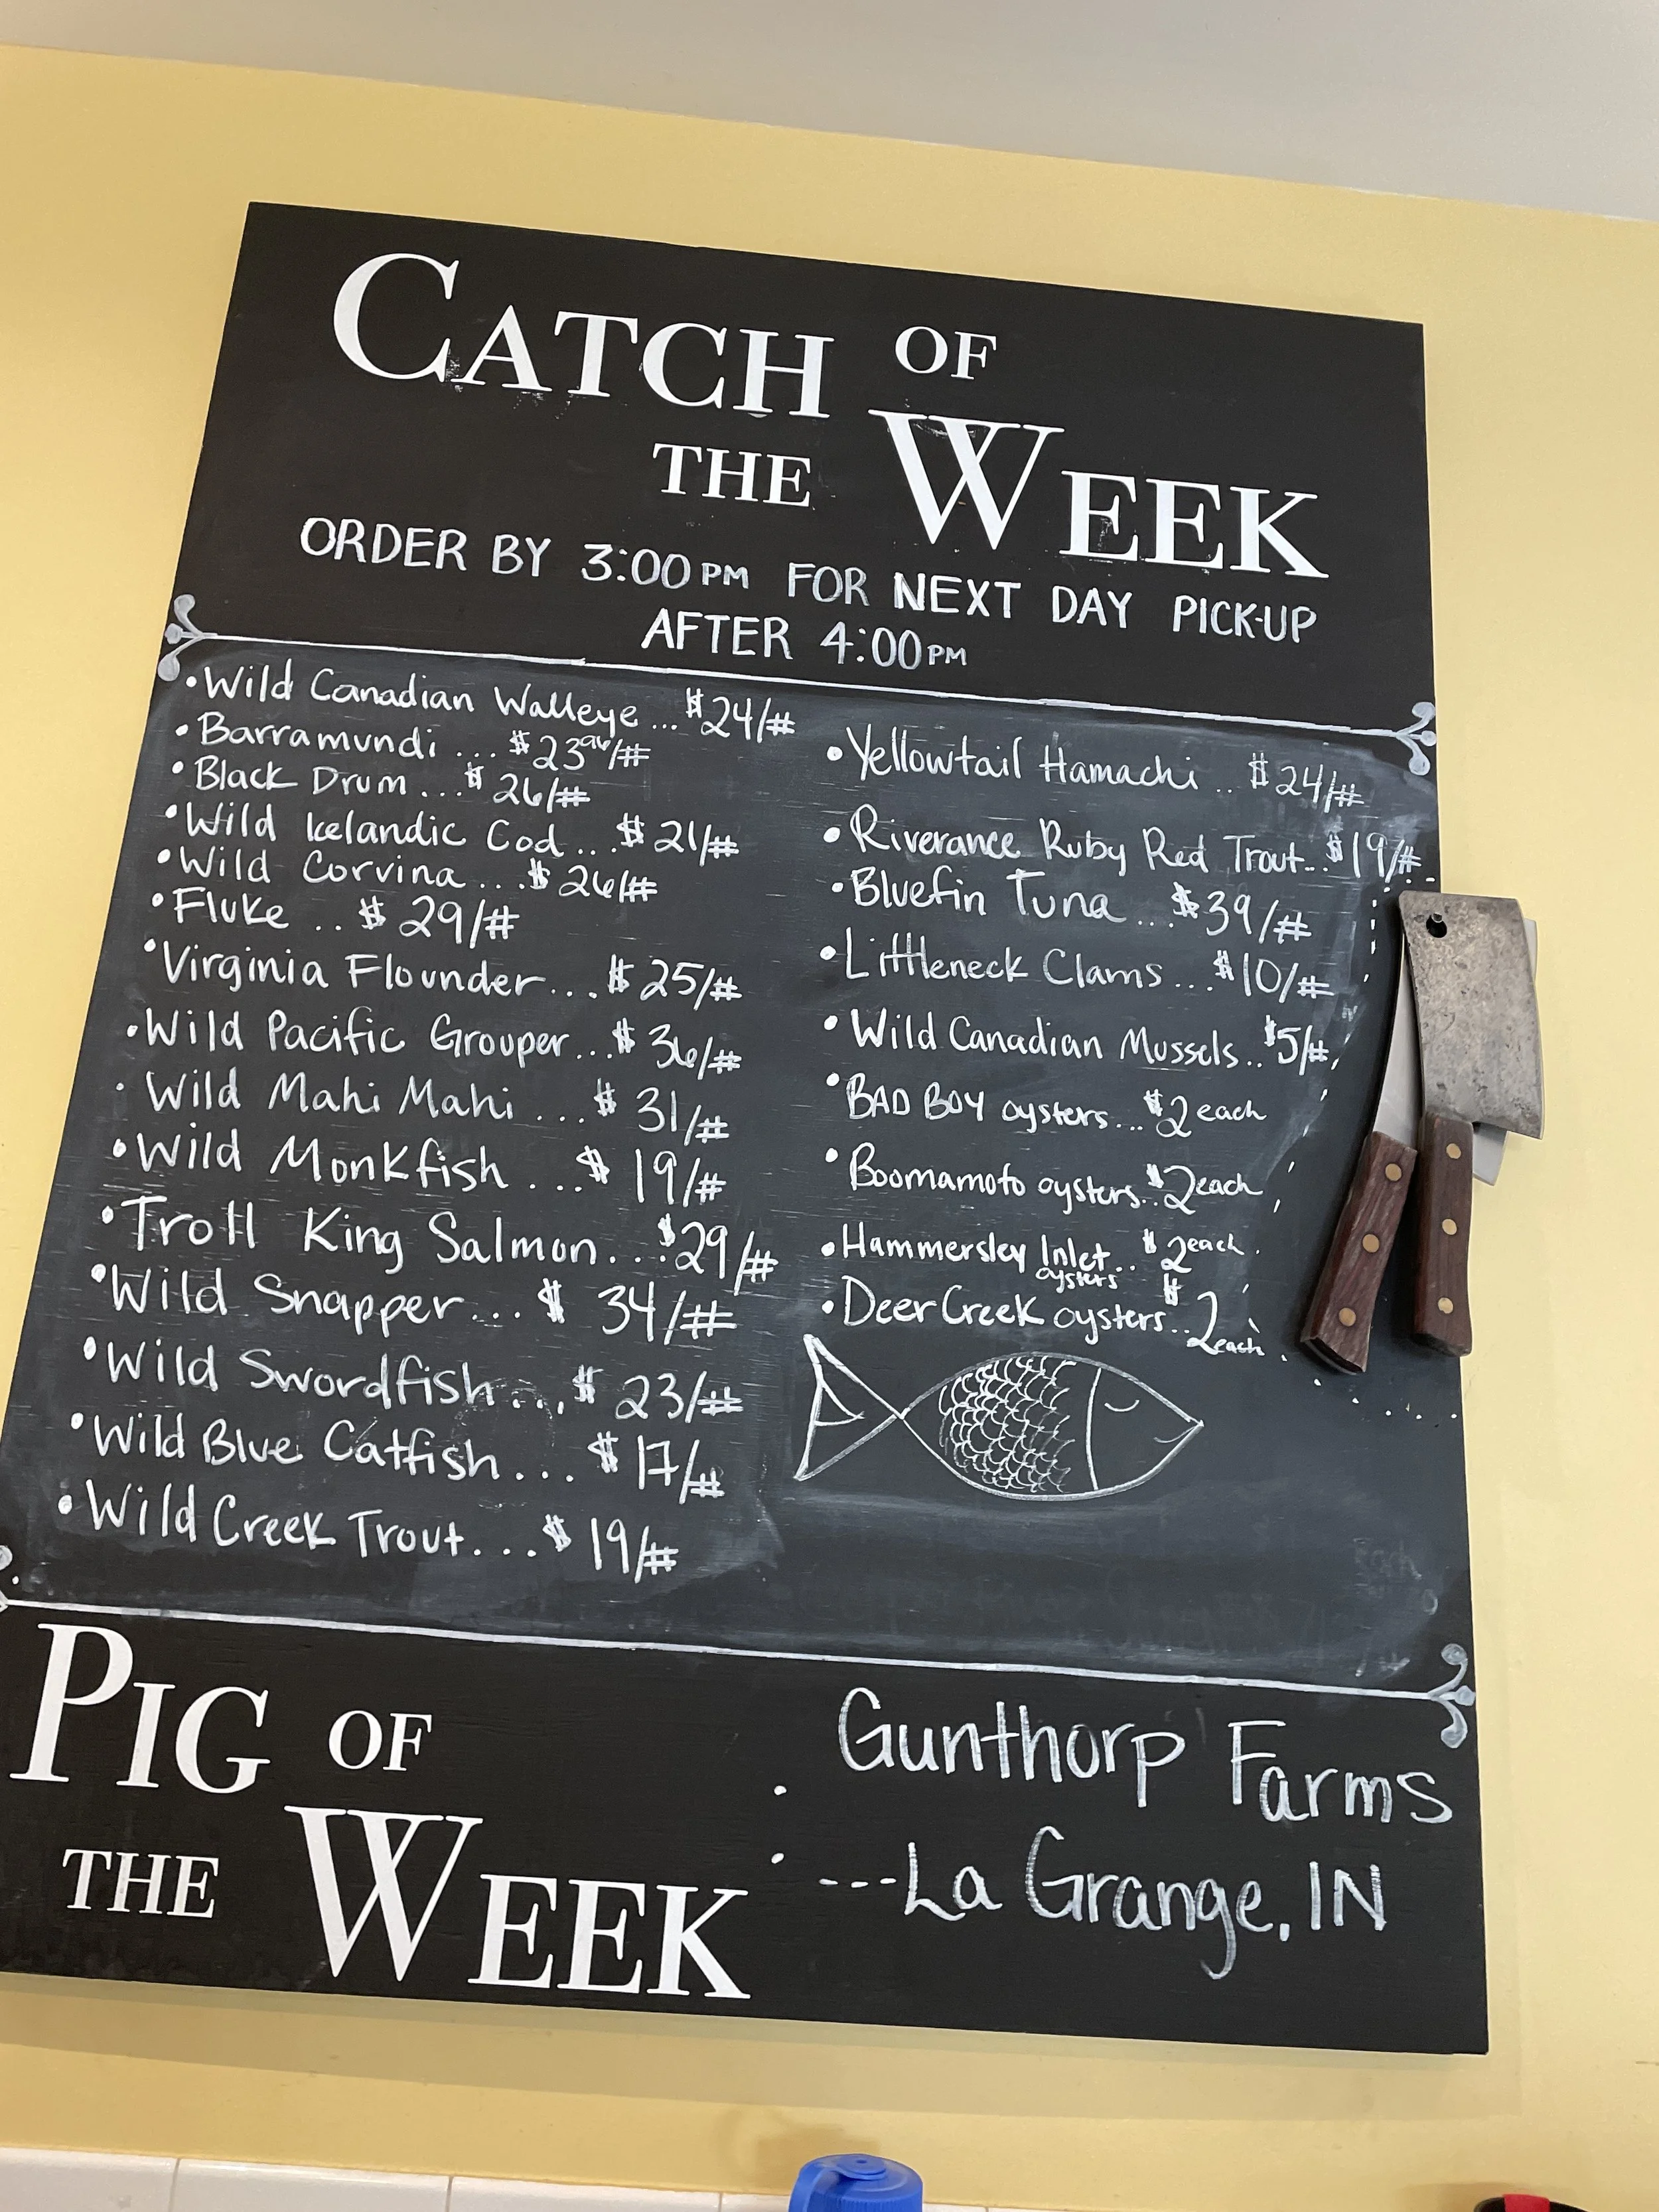 CATCH OF
THE WEEK
ORDER BY 3:00PM FOR NEXT DAY PICK-UP
AFTER 4:00PM
•Wild Canadian Walleye...$24/#
•Barramundi ... $23⁹⁶/#
•Black Drum ...$26/#
•Wild Icelandic Cod...$21/#
•Wild Corvina ...$26/#
•Fluke .. $29/#
•Virginia Flounder...$25/#
•Wild Pacific Grouper...$36/#
•Wild Mahi Mahi ...$31/#
•Wild Monkfish ...$19/#
•Troll King Salmon...$29/#
•Wild Snapper...$34/#
•Wild Swordfish...$23/#
•Wild Blue Catfish...$17/#
•Wild Creek Trout...$19/#
•Yellowtail Hamachi .. $24/#
•Riverance Ruby Red Trout..$19/#
•Bluefin Tuna ...$39/#
•Littleneck Clams ...$10/#
•Wild Canadian Mussels..$5/#
•BAD BOY oysters...$2 each
•Boomamoto oysters..$2 each
•Hammersley Inlet.. $2 each
oysters
•Deer Creek oysters..$2 each
PIG OF
THE WEEK
: Gunthorp Farms
---La Grange, IN